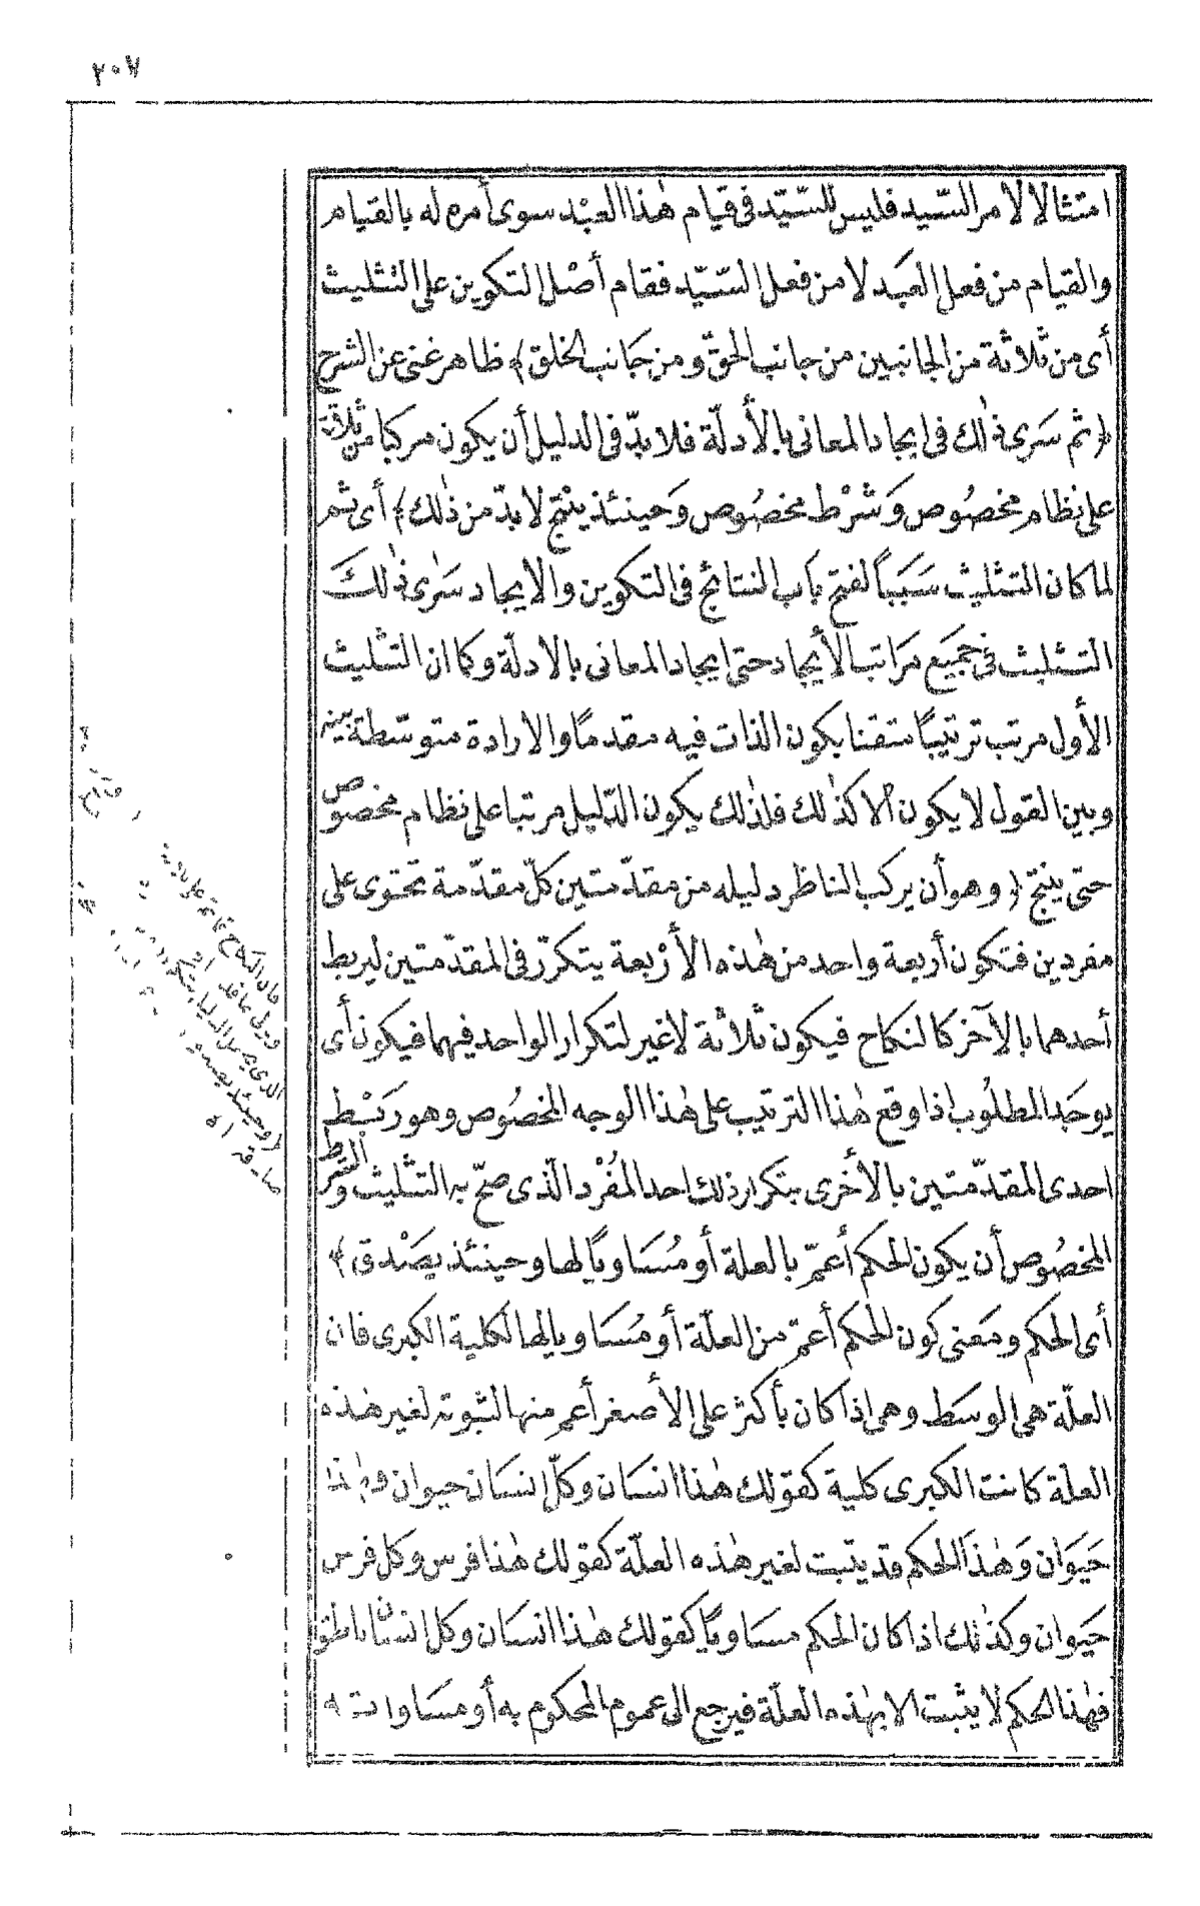 ٢٠٧
امتثالا لأمر السّيد فليس للسّيّد فى قيام هٰذا العبْد سوى أمره له بالقيام
والقيام من فعل العبَد لا من فعل السّيّد فقام أصْل التكوين على التثليث
أى من ثلاثة من الجانبين من جانب الحقّ ومن جَانب الخلق﴾ ظاهر غنى عن الشرح
﴿ثم سَرى ذٰلك فى ايجاد المعانى بالأدلّة فلا بدّ فى الدليل أن يكون مركبا من ثلاثة
على نظام مخصُوص وَشرْط مخصُوص وَحينئذ ينْتج لا بدّ من ذٰلك﴾ أى ثم
لما كان التثليث سَبَباً لفتح باب النتائج فى التكوين والايجاد سَرٰى ذٰلكَ
التثليث فى جَميَع مرَاتب الأيجاد حتى ايجاد المعانى بالادلّة وكما ان التثليث
الأول مرتب ترتيبًا متقنا بكون الذات فيه مقدمًا والارادة متوسّطة بينه
وبين القول لا يكون الا كذٰلك فلذٰلك يكون الدّليل مرتبا على نظام مخصُوص
حتى ينتج ﴿وهو أن يركب الناظر دليله من مقدّمتين كلّ مقدّمة تحتوى على
مفردين فتكون أربعة واحد من هٰذه الأرْبعة يتكرّر فى المقدّمتين ليربط
أحدهما بالآخر كالنكاح فيكون ثلاثة لا غير لتكرار الواحد فيهما فيكون أى
يوجَد المطلُوب اذا وقع هٰذا الترتيب على هٰذا الوجه المخصُوص وهو ربَط
احدى المقدّمتين بالأخرى بتكرار ذلك احد المُفْرد الّذى صحّ به التثليث والشرط
المخصُوص أن يكون الحكم أعمّ بالعلة أو مُسَاويًا لها وحينئذ يصَدق﴾
أى الحكم ومَعنى كون الحكم أعمّ من العلّة أو مُسَاويا لها الكلية الكبرى فان
العلّة هى الوسَط وهى اذا كان بأكثر على الأصغر أعم منها لثبوته لغير هذه
العلّة كانت الكبرى كلية كقولك هٰذا انسَان وكلّ انسَان حيوان فهٰذا
حَيَوان وَهٰذا الحكم قد يثبت لغير هٰذه العلّة كقولك هٰذا فرس وكل فرس
حَيوان وكذٰلك اذا كان الحكم مسَاويًا كقولك هٰذا انسَان وكل انسان ناطق
فهٰذا الحكم لا يثبت الا بهٰذه العلّة فيرجع الى عموم المحكوم به أو مسَاواته
فان النكاح قائم على ثلاثة